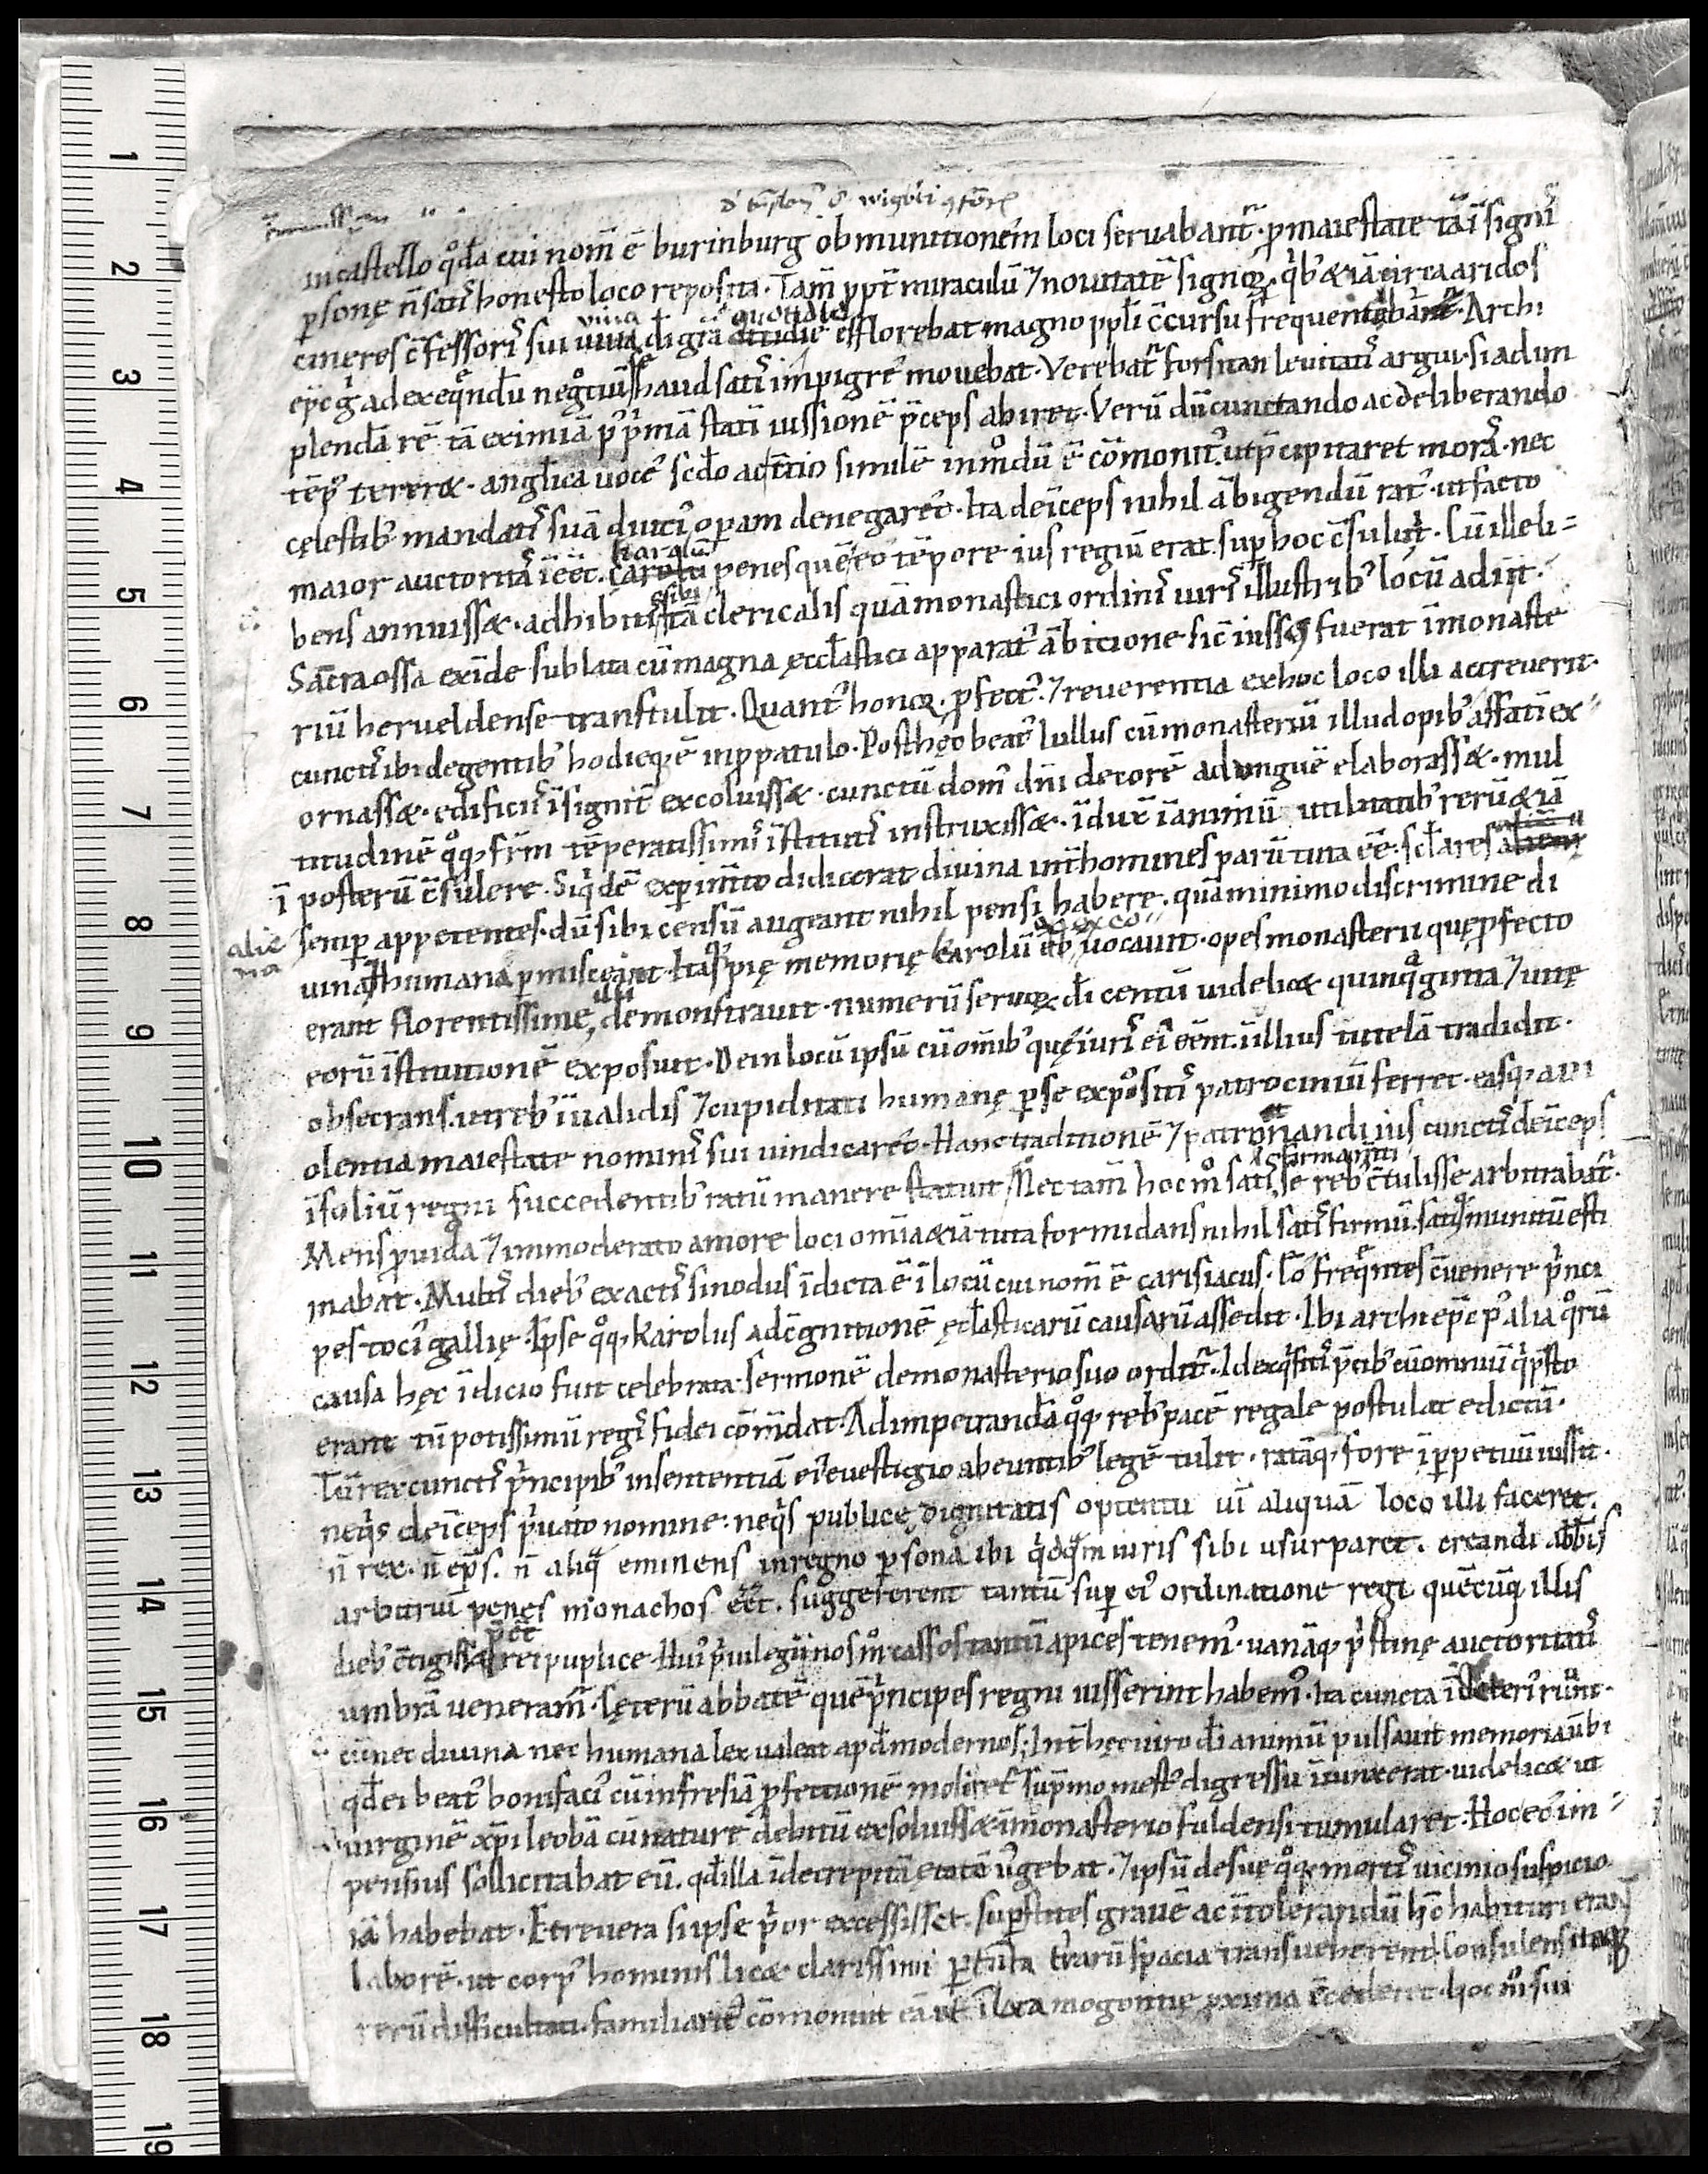 in castello q̊dā cui nom̄ ē burinburg ob munitionem loci seruabant᷒. p maiestate tā īsigni᷒
psonę n̄ satis honesto loco reposita. Tam̄ ppt̄ miraculū ⁊ nouitatē signoꝝ. qͥb᷒ & iā circa aridos
cineres c̄fessoris sui uiua dī gr̄a quotidie efflorebat magno ppli c̄cursu frequentabant᷒. Archi
ep̄c gͥ ad exeq̊ndū negotiū se haud satis impigre mouebat. Verebat᷒ forsitan leuitatis argui. si ad im
plendā rē tā eximiā p᷒ pͥmā statī iussionē p̄ceps abiret. Verū dū cunctando ac deliberando
tēp᷒ terer&. anglica uoce sc̄do ac t̄tio similē in m̊dū ē cōmonit᷒. ut p̄cipitaret morā. nec
cęlestib᷒ mandatis suā diuci᷒ opam denegaret. Ita deīceps nihil ābigendū rat᷒. ut facto
maior auctoritas īeēt. karolū penes quē eo tēpore ius regiū erat sup hoc c̄suluit. Cū ille li=
bens annuiss&. adhibitis sibi tā clericalis quā monastici ordinis uiris illustrib᷒ locū adiit.
Sācra ossa exīde sublata cū magna ęccl̄astici apparat᷒ ābicione sic iuss᷒ fuerat ī monaste
riū herueldense transtulit. Quant᷒ honoꝝ. pfect᷒. ⁊ reuerentia ex hoc loco illi accreuerit.
cunctis ibi degentib᷒ hodieq; ē in ppatulo. Post hęc beat᷒ lullus cū monasteriū illud opib᷒ affatī ex=
ornass&. edificiis īsignit᷒ excoluiss&. cunctū dom᷒ dn̄i decorē ad unguē elaborass&. mul
titudinē q̊q; fr̄m tēperatissimis īstitutis instruxiss&. īdux̄ īanimū utilitatib᷒ rerū & iā
ī posterū c̄sulere. Siqͥdē exprim̄to didicerat diuina int̄ homines parū tuta eē. scl̄ares aliena
semp appetentes. dū sibi censū augeant nihil pensi habere. quā minimo discrimine di
alie
na
uina humana pmisceant. Itaq; pię memorię karolū uocauit. opes monasterii quę pfecto
erant florentissime illi demonstrauit. numerū seruoꝝ dī centū uidelic& quinq̊ginta ⁊ uitę
eorū īstitutionē exposuit. Dein locū ipsū cū omīb᷒ quę iuris ei᷒ eēnt. illius tutelā tradidit.
obsecrans. ut reb᷒ īualidis ⁊ cupiditati humanę p se expositis patrociniū ferret. easq; a ui
olentia maiestate nominis sui uindicaret. Hanc traditionē ⁊ patronandi ius cunctis deīceps
ī soliū regni succedentib᷒ ratū manere statuit. Nec tam̄ hoc m̊ satis se firmamti reb᷒ c̄tulisse arbitrabat᷒.
Mens puida ⁊ immoderato amore loci omīa & iā tuta formidans nihil satis firmū. satisq; munitū esti
mabat. Multis dieb᷒ exactis sinodus īdicta ē ī locū cui nom̄ ē carisiacus. Eo freq̄ntes c̄uenere pͥnci
pes toci᷒ gallię. Ipse q̊q; karolus ad c̄gnitionē ęcl̄asticarū causarū assedit. Ibi archiep̄c p᷒ alia q̊rū
causa hęc īdicio fuit celebrata. sermonē de monasterio suo ordit᷒. Id exqͥsitis p̄cib᷒ cū omniū qͥ p̄sto
erant tū potissimū regis fidei cōmdat. Ad impetrandā q̊q; reb᷒ pacē regale postulat edictū.
Tū rex cunctis pͥncipib᷒ in sententiā ei᷒ e uestigio abeuntib᷒ legē tulit. ratāq; fore ī ppetuū iussit.
neqͥs deīceps pͥuato nomine. neqͥs publicę dignitatis optentu uī aliquā loco illi faceret.
n̄ rex. n̄ ep̄s. n̄ aliq̄ eminens in regno psona ibi qͥdq̄m iuris sibi usurparet. creandi abb̄is
arbitriū penes monachos eēt. suggererent tantū sup ei᷒ ordinatione regi quēcūq; illis
dieb᷒ c̄tigiss& p̄eēt rei puplice. Hui᷒ pͥuilegii nos m̊ cassos tantū apices tenem᷒. uanāq; pͥstinę auctoritatis
umbrā ueneram᷒. Cęterū abbatē quē pͥncipes regni iusserint habem᷒. Ita cuncta ī deteri᷒ ruunt.
cū nec diuina nec humana lex ualeat apd̄ modernos. Int̄ hęc uiro dī animū pulsauit memoria uerbi
qd̄ ei beat᷒ bonifaci᷒ cū in fresiā pfectionē moliret᷒ supmo mest᷒ digressu īiunxerat. uidelic& ut
uirginē xp̄i leobā cū naturę debitū exsoluiss& ī monasterio fuldensi tumularet. Hoc eo im=
pensius sollicitabat eū. qd̄ illa ī decrepitā ętatē u᷒gebat. ⁊ ipsū de sue q̊q; mortis uicinio suspicio
iā habebat. Et reuera si ipse pͥor excessisset. supstites grauē ac ītolerandū hc̄ habituri erant
laborē. ut corp᷒ hominis lic& clarissimi p tanta t̄rarū spacia transueherent. Consulens itaq;
rerū difficultati. familiarit᷒ cōmonuit eā ut ī loca mogontię pxima cēcederet. hoc m̊ sui